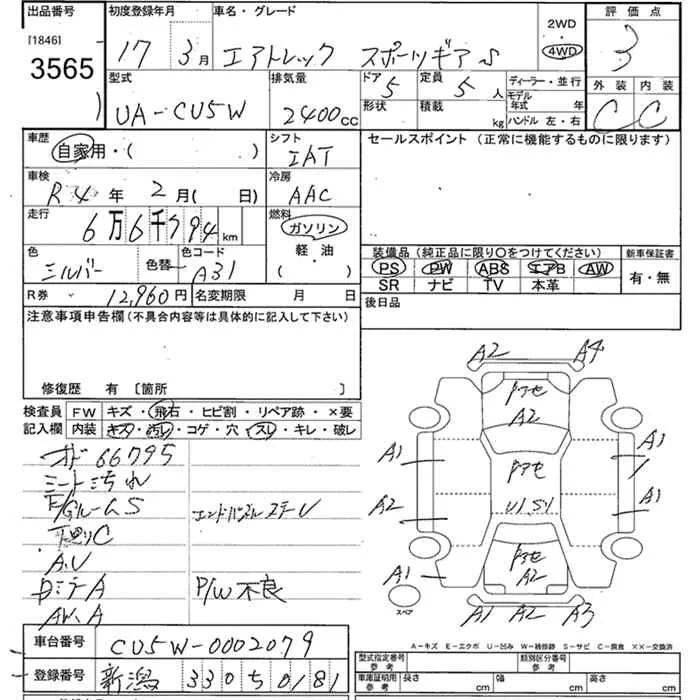 出品番号 初度登録年月 車名・グレード 2WD 評価点
[1846] 17 3月 エアトレック スポーツギア S 4WD 3
3565
型式 排気量 ドア 定員 ディーラー・並行 外装 内装
UA-CU5W 2400cc 5 5人 モデル年式 年 C C
形状 積載 kg ハンドル 左・右
車歴 シフト セールスポイント(正常に機能するものに限ります)
自家用・( ) IAT
車検 冷房
R4年 2月( 日) AAC
走行 燃料
6万6千794km ガソリン
軽・油
( )
色 色替 色コード 装備品(純正品に限り○をつけてください) 新車保証書
シルバー A31 PS PW ABS エアB AW 有・無
SR ナビ TV 本革
R券 12,960円 名変期限 月 日 後日品
注意事項申告欄(不具合内容等は具体的に記入して下さい)
修復歴 有 [箇所 ]
検査員 FW キズ・飛石・ヒビ割・リペア跡・×要
記入欄 内装 キズ・汚レ・コゲ・穴・スレ・キレ・破レ
66795
シート汚れ
下廻りC
A.U
P/W不良
AW.A
A2 A4
A2
A1 A1
U1.S1
A2 A1
A2
A1
スペア
A1 A2 A3
A-キズ E-エクボ U-凹み W-補修跡 S-サビ C-腐食 ××-交換済
車台番号 CU5W-0002079
登録番号 新潟 330 50181
型式指定番号 参考 類別区分番号 参考
車庫証明用 参考 長さ cm 幅 cm 高さ cm